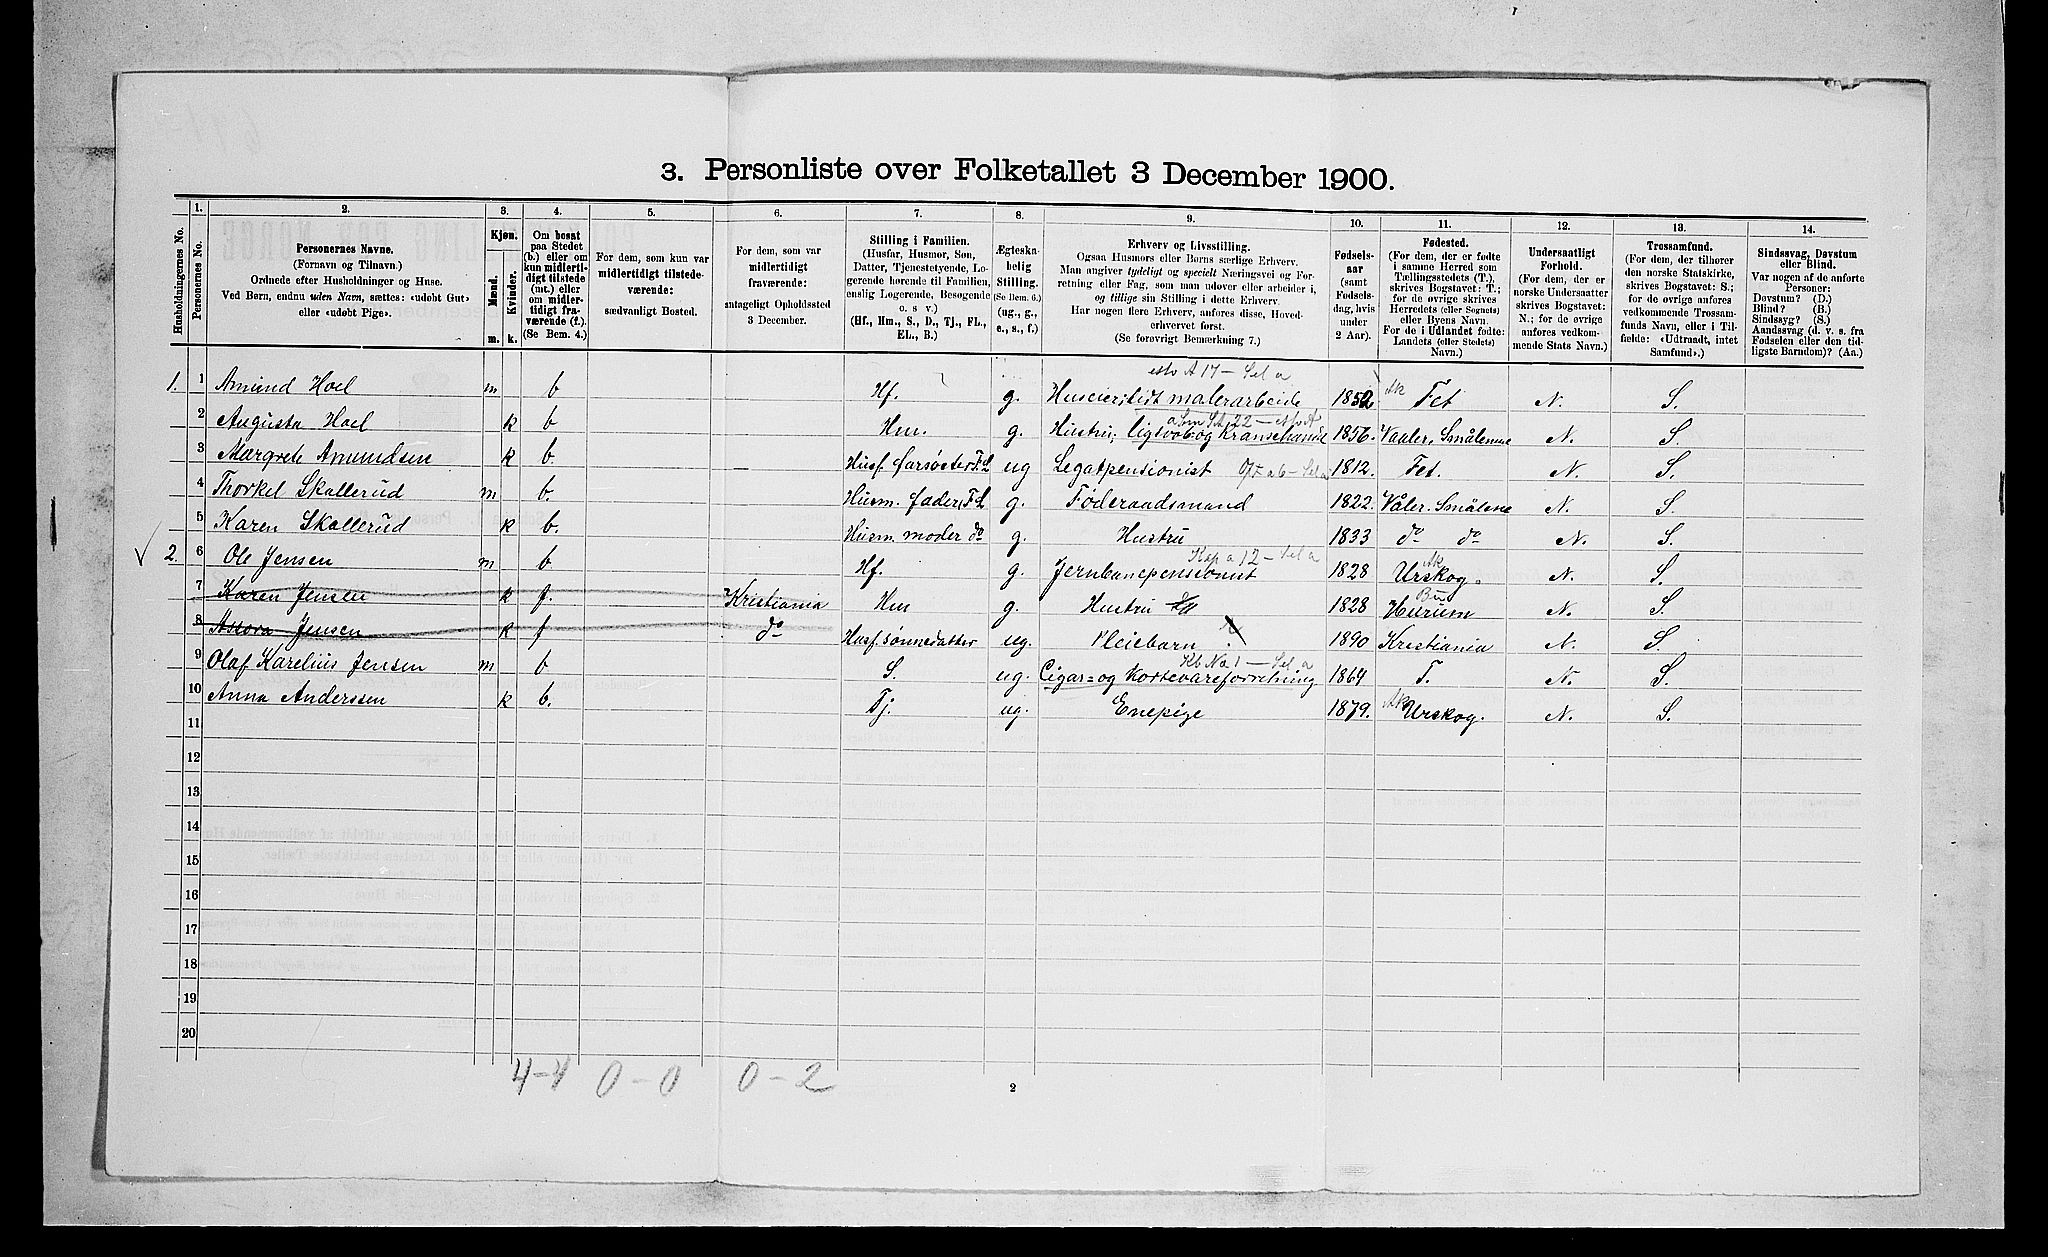 3. Personliste over Folketallet 3 December 1900.
1. 2. 3. 4. 5. 6. 7. 8. 9. 10. 11. 12. 13. 14.
Husholdningernes No.
Personernes No.
Personernes Navne.
(Fornavn og Tilnavn.)
Ordnede efter Husholdninger og Huse.
Ved Børn, endnu uden Navn, sættes: «udøbt Gut»
eller «udøbt Pige».
Kjøn.
Mænd.
Kvinder.
m. k.
Om bosat
paa Stedet
(b.) eller om
kun midlerti-
digt tilstede
(mt.) eller
om midler-
tidigt fra-
værende (f.).
(Se Bem. 4.)
For dem, som kun var
midlertidigt tilstede-
værende:
sædvanligt Bosted.
For dem, som var
midlertidigt
fraværende:
antageligt Opholdssted
3 December.
Stilling i Familien.
(Husfar, Husmor, Søn,
Datter, Tjenestetyende, Lo-
gerende hørende til Familien,
enslig Logerende, Besøgende
o. s v.)
(Hf., Hm., S., D., Tj., FL.,
EL., B.)
Ægteska-
belig
Stilling.
(Se Bem. 6.)
(ug., g.,
e., s., f.)
Erhverv og Livsstilling.
Ogsaa Husmors eller Børns særlige Erhverv.
Man angiver tydeligt og specielt Næringsvei og For-
retning eller Fag, som man udøver eller arbeider i,
og tillige sin Stilling i dette Erhverv.
Har nogen flere Erhverv, anføres disse, Hoved-
erhvervet først.
(Se forøvrigt Bemærkning 7.)
Fødsels-
aar
(samt
Fødsels-
dag, hvis
under
2 Aar).
Fødested.
(For dem, der er fødte
i samme Herred som
Tællingsstedets (T.),
skrives Bogstavet: T.;
for de øvrige skrives
Herredets (eller Sognets)
eller Byens Navn.
For de i Udlandet fødte:
Landets (eller Stedets)
Navn.)
Undersaatligt
Forhold.
(For dem, der er
norske Undersaatter
skrives Bogstavet:
N.; for de øvrige
anføres vedkom-
mende Stats Navn.)
Trossamfund.
(For dem, der tilhører
den norske Statskirke,
skrives Bogstavet: S.;
for de øvrige anføres
vedkommende Trossam-
funds Navn, eller i Til-
fælde: «Udtraadt, intet
Samfund».)
Sindssvag, Døvstum
eller Blind.
Var nogen af de anførte
Personer:
Døvstum? (D.)
Blind? (B.)
Sindssyg? (S.)
Aandssvag (d. v. s. fra
Fødselen eller den tid-
ligste Barndom)? (Aa.)
1. 1 Amund Hoel m b Hf. g. Huseier, lidt malerarbeide 1852 Ak Fet N. S.
2 Augusta Hoel k b Hm. g. Hustru; og Kransehandel 1856. Vaaler. Smålenene N. S.
3 Margrete Amundsen k b. Husf. farsøster F.L ug Legatpensionist 1812. Fet. N. S.
4 Thorkel Skallerud m b. Husm. fader, F.L g. Føderaadsmand 1822. Våler. Smålene N. S.
5 Karen Skallerud k b. Husm. moder do g. Hustru 1833 do do N. S.
2. 6 Ole Jensen m b Hf. g. Jernbanepensionist 1828 Ak Urskog. N. S.
7 Karen Jensen k f. Kristiania Hm g. Hustru 1828 Bu Hurum N. S.
8 Jensen k f do Husf. sønnedatter ug. Pleiebarn 1890 Kristiania N. S.
9 Olaf Karelius Jensen m b S. ug. Cigar= og Kortevareforretning 1864 T. N. S.
10 Anna Anderssen k b. Tj. ug. Enepige 1879. Ak Urskog. N. S.
11
12
13
14
15
16
17
18
19
20
4-4 0-0 0-2
2